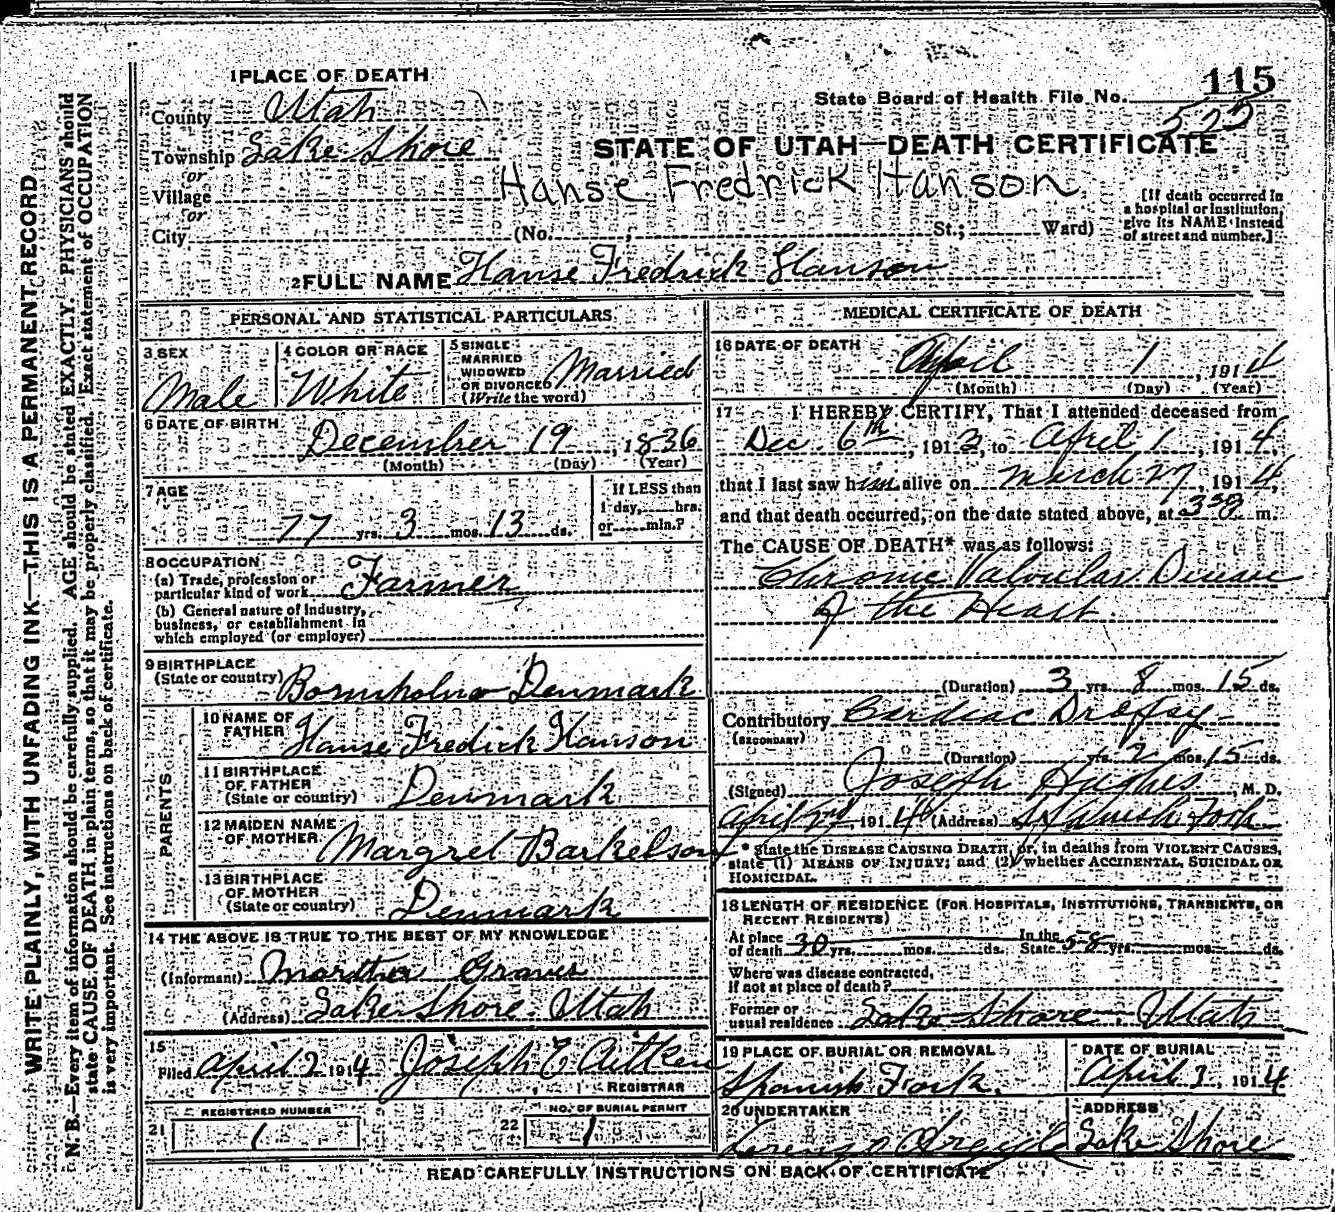 115
1 PLACE OF DEATH
State Board of Health File No. 522
County Utah
Township Lake Shore
STATE OF UTAH—DEATH CERTIFICATE
or
Village
Hanse Fredrick Hanson
[If death occurred in a hospital or institution, give its NAME instead of street and number.]
or
City (No. , St.; Ward)
2 FULL NAME Hanse Fredrick Hanson
PERSONAL AND STATISTICAL PARTICULARS
3 SEX Male
4 COLOR OR RACE White
5 SINGLE MARRIED WIDOWED OR DIVORCED (Write the word) Married
6 DATE OF BIRTH December 19, 1836
(Month) (Day) (Year)
7 AGE 77 yrs. 3 mos. 13 ds.
If LESS than 1 day, hrs. or min.?
8 OCCUPATION
(a) Trade, profession or particular kind of work Farmer
(b) General nature of industry, business, or establishment in which employed (or employer)
9 BIRTHPLACE (State or country) Bornholm Denmark
PARENTS
10 NAME OF FATHER Hanse Fredick Hanson
11 BIRTHPLACE OF FATHER (State or country) Denmark
12 MAIDEN NAME OF MOTHER Margret Barkelson
13 BIRTHPLACE OF MOTHER (State or country) Denmark
14 THE ABOVE IS TRUE TO THE BEST OF MY KNOWLEDGE
(Informant) Martha Graves
(Address) Lake Shore. Utah
15 Filed April 2 1914 Joseph E Aitken
REGISTRAR
21 REGISTERED NUMBER 1
22 NO. OF BURIAL PERMIT 1
MEDICAL CERTIFICATE OF DEATH
16 DATE OF DEATH April 1, 1914
(Month) (Day) (Year)
17 I HEREBY CERTIFY, That I attended deceased from
Dec 6th, 1913, to April 1, 1914,
that I last saw him alive on March 27, 1914,
and that death occurred, on the date stated above, at 3 30 m.
The CAUSE OF DEATH* was as follows:
Chronic Valvular Disease
of the Heart
(Duration) 3 yrs. 8 mos. 15 ds.
Contributory Cardiac Dropsy
(SECONDARY)
(Duration) yrs. 2 mos. 15 ds.
(Signed) Joseph Hughes, M. D.
April 2nd, 1914 (Address) Spanish Fork
* State the DISEASE CAUSING DEATH, or, in deaths from VIOLENT CAUSES, state (1) MEANS OF INJURY; and (2) whether ACCIDENTAL, SUICIDAL OR HOMICIDAL.
18 LENGTH OF RESIDENCE (FOR HOSPITALS, INSTITUTIONS, TRANSIENTS, OR RECENT RESIDENTS)
At place of death 30 yrs. mos. ds. In the State 58 yrs. mos. ds.
Where was disease contracted, if not at place of death?
Former or usual residence Lake Shore, Utah
19 PLACE OF BURIAL OR REMOVAL Spanish Fork.
DATE OF BURIAL April 3, 1914
20 UNDERTAKER Lorenzo
ADDRESS Lake Shore
READ CAREFULLY INSTRUCTIONS ON BACK OF CERTIFICATE
WRITE PLAINLY, WITH UNFADING INK—THIS IS A PERMANENT RECORD
N. B.—Every item of information should be carefully supplied. AGE should be stated EXACTLY. PHYSICIANS should
state CAUSE OF DEATH in plain terms, so that it may be properly classified. Exact statement of OCCUPATION
is very important. See instructions on back of certificate.